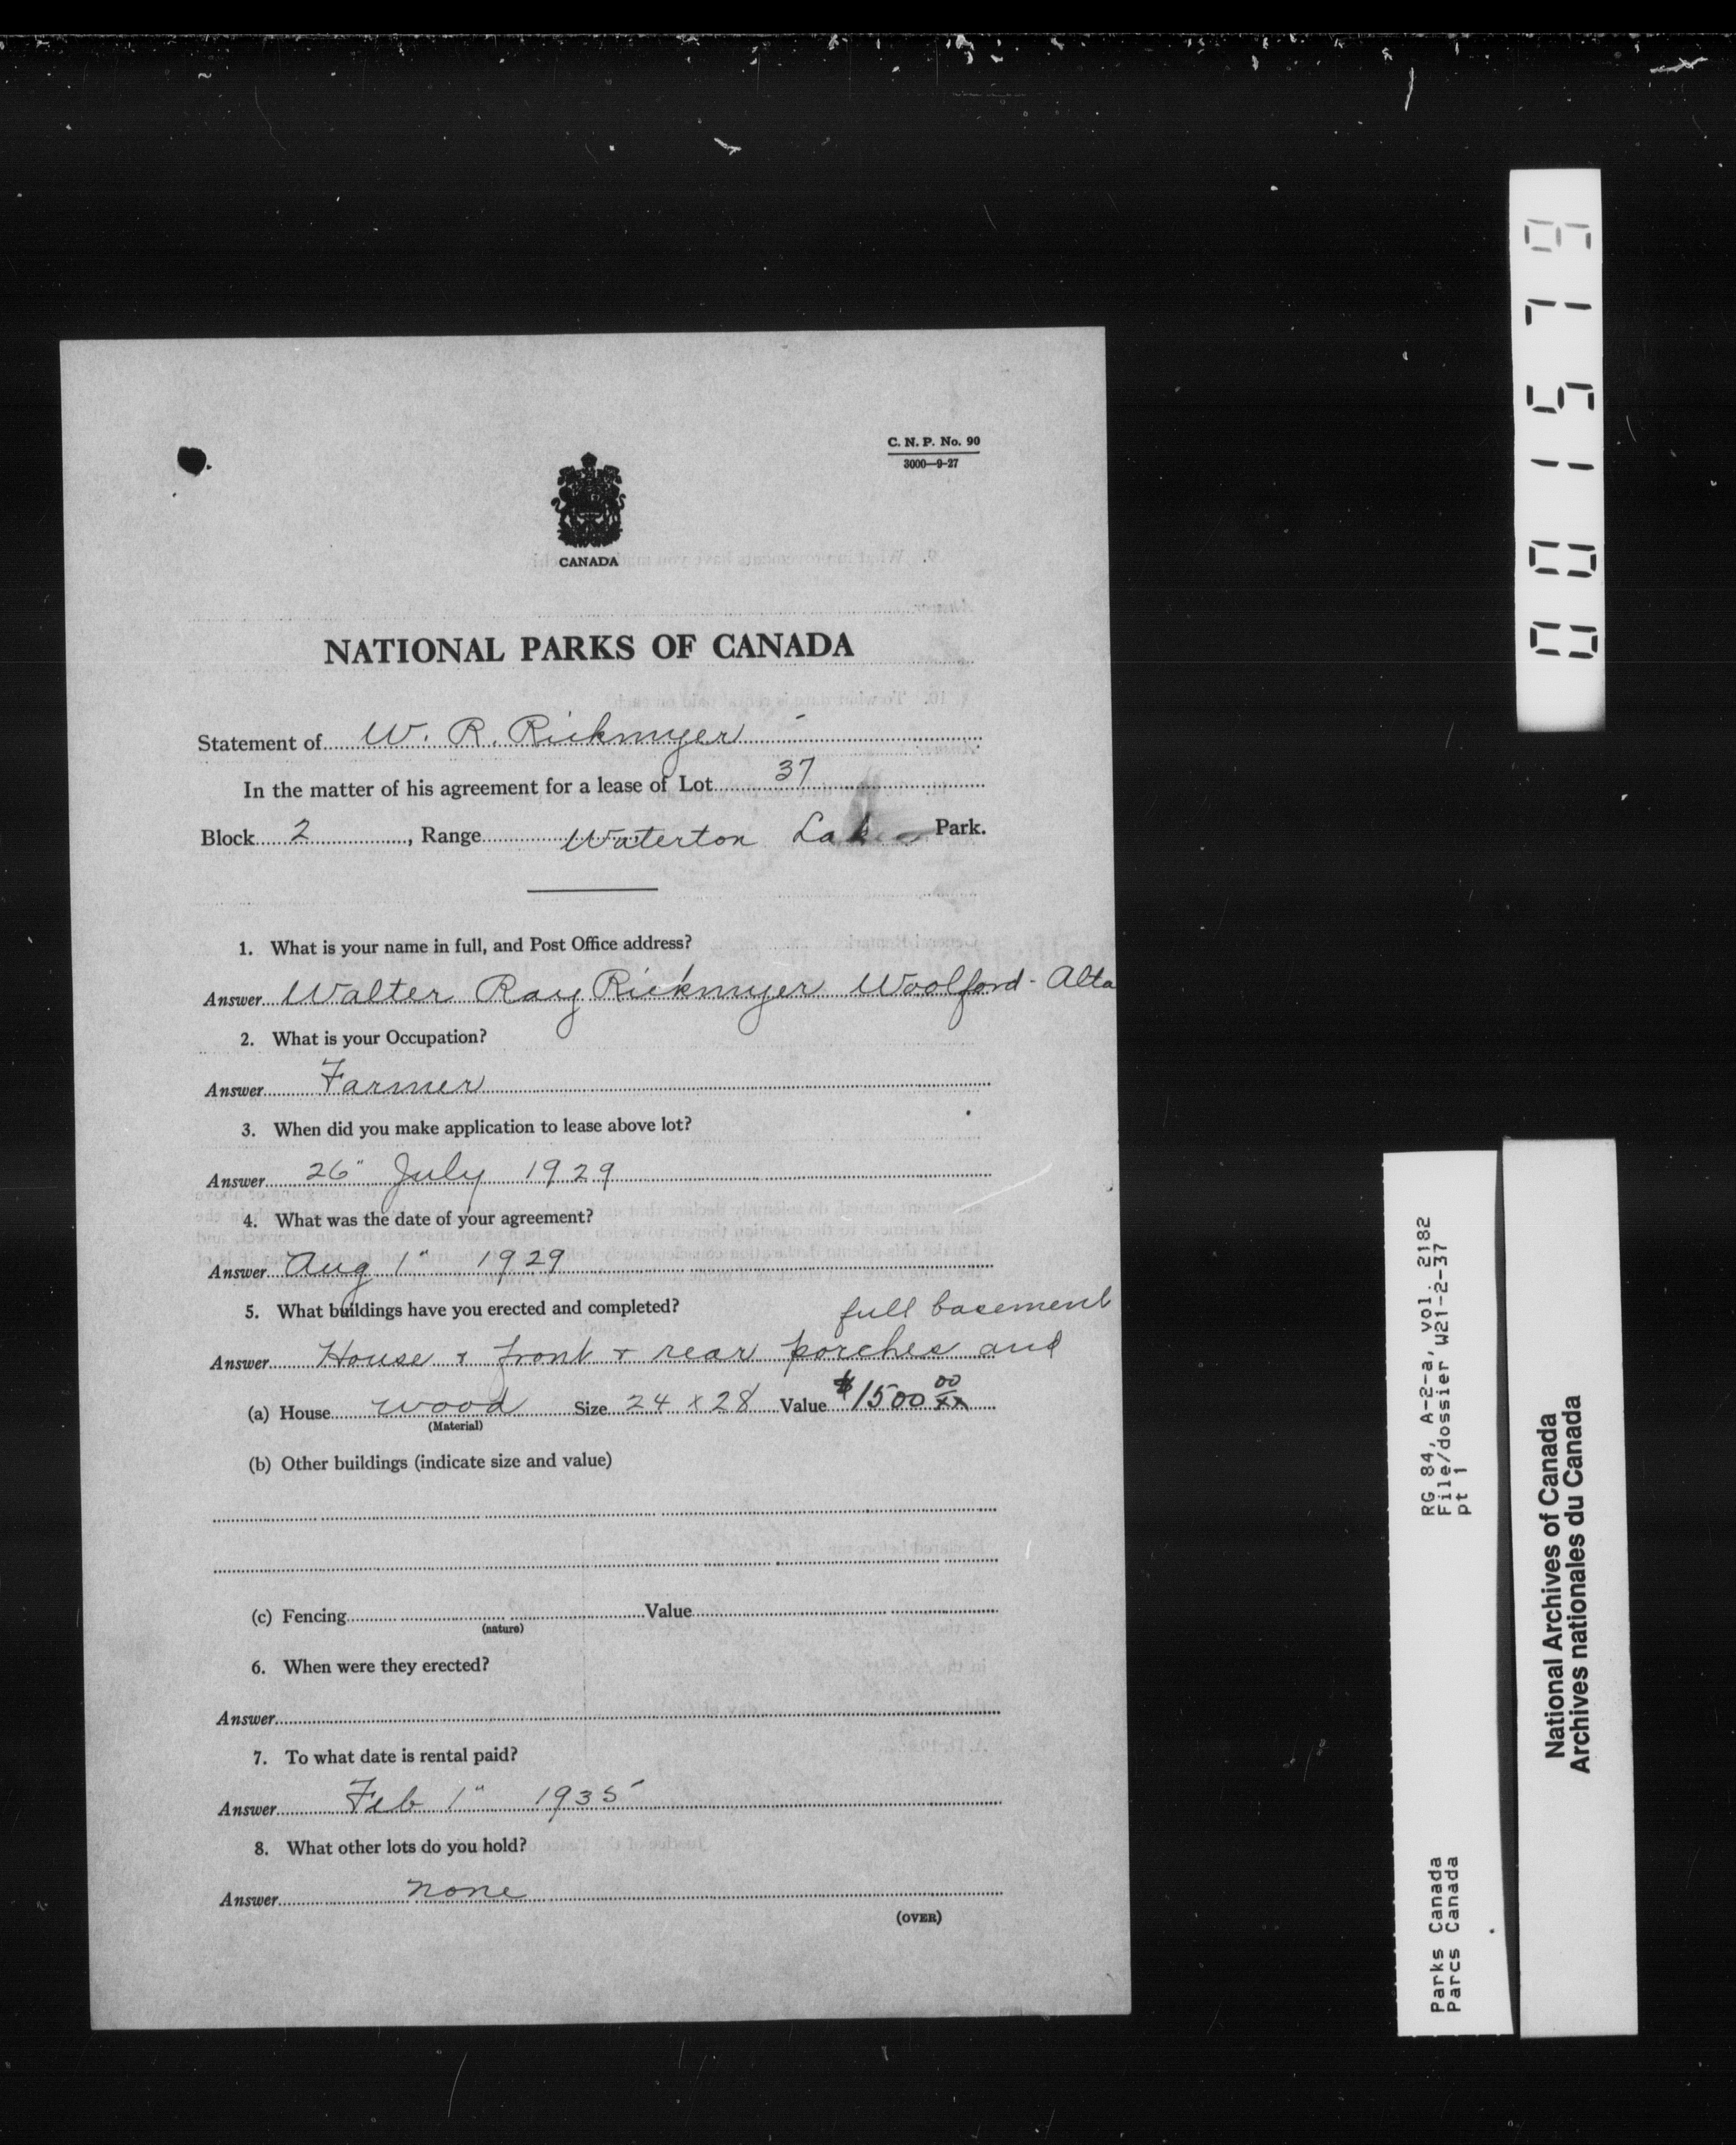 C. N. P. No. 90
3000—9-27
CANADA
NATIONAL PARKS OF CANADA
Statement of W. R. Rickmyer
In the matter of his agreement for a lease of Lot 37
Block 2, Range Waterton Lakes Park.
1. What is your name in full, and Post Office address?
Answer Walter Ray Rickmyer Woolford - Alta
2. What is your Occupation?
Answer Farmer
3. When did you make application to lease above lot?
Answer 26" July 1929
4. What was the date of your agreement?
Answer Aug 1" 1929
5. What buildings have you erected and completed? full basement
Answer House & front & rear porches and
(a) House wood Size 24 x 28 Value $1500 00/xx
(Material)
(b) Other buildings (indicate size and value)
(c) Fencing Value
(nature)
6. When were they erected?
Answer
7. To what date is rental paid?
Answer Feb 1" 1935
8. What other lots do you hold?
Answer none
(OVER)
001579
RG 84, A-2-a, vol. 2182
File/dossier W21-2-37
pt 1
Parks Canada
Parcs Canada
National Archives of Canada
Archives nationales du Canada